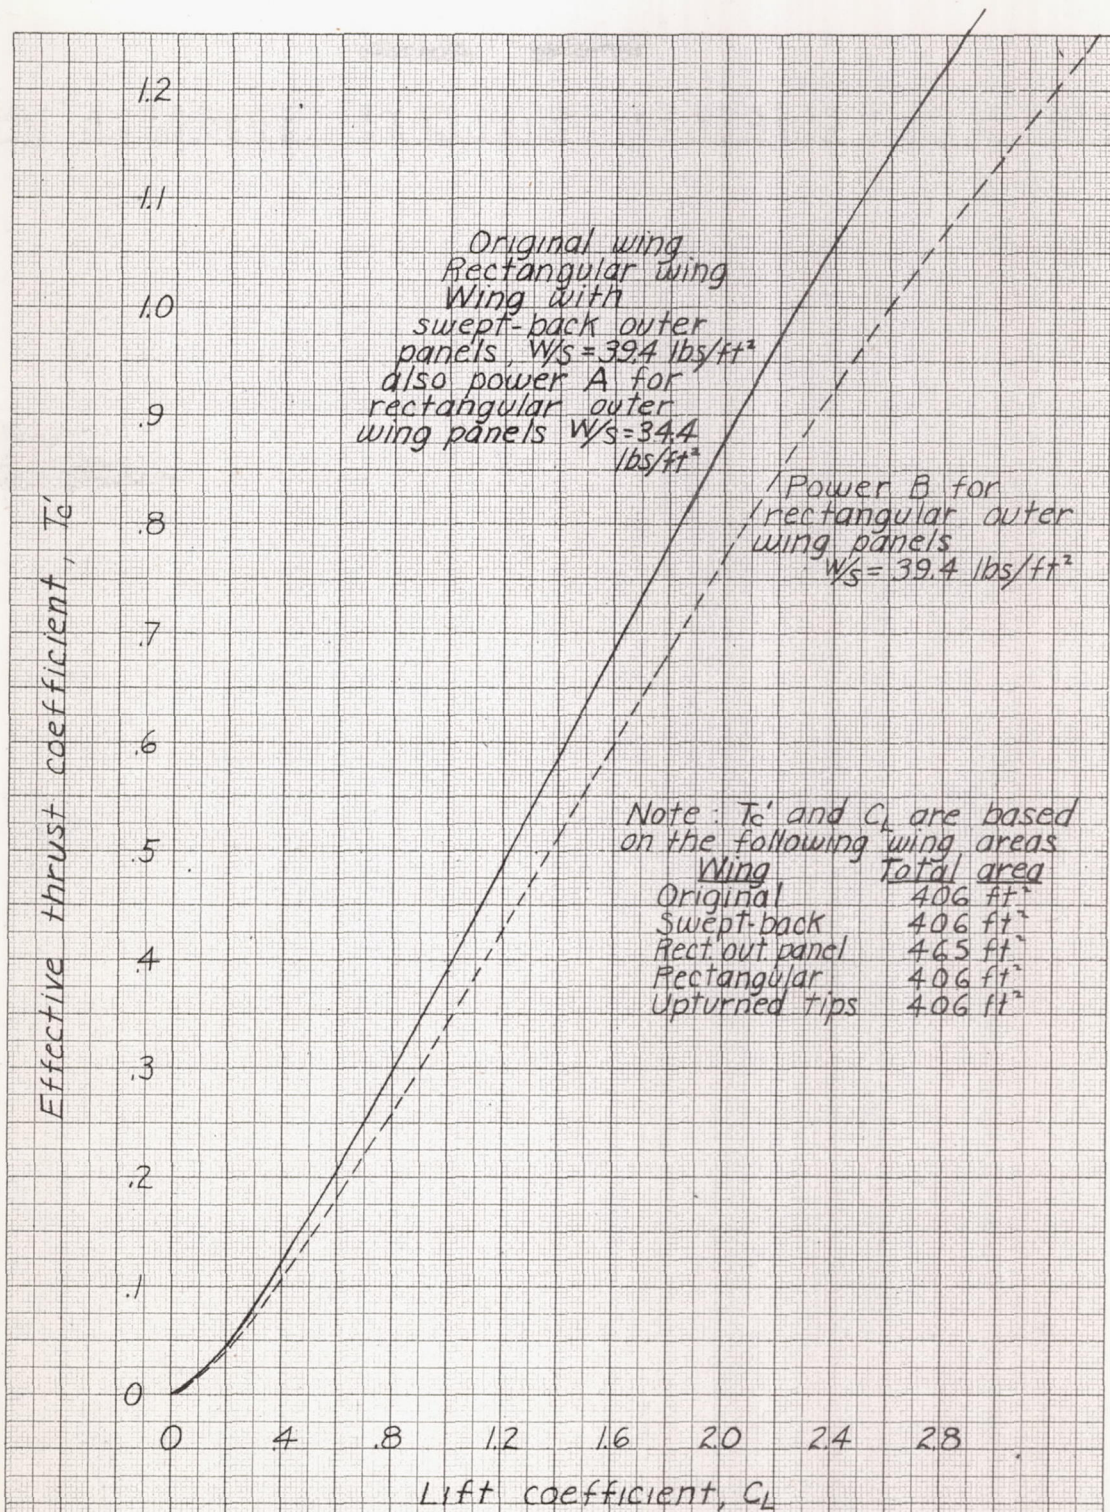 1.2
1.1
1.0
.9
.8
.7
.6
.5
.4
.3
.2
.1
0
Effective thrust coefficient, Tc'
Original wing
Rectangular wing
Wing with
swept-back outer
panels, W/S = 39.4 lbs/ft²
also power A for
rectangular outer
wing panels W/S = 34.4
lbs/ft²
Power B for
rectangular outer
wing panels
W/S = 39.4 lbs/ft²
Note: Tc' and CL are based
on the following wing areas
Wing Total area
Original 406 ft²
Swept-back 406 ft²
Rect. out. panel 465 ft²
Rectangular 406 ft²
Upturned tips 406 ft²
0 .4 .8 1.2 1.6 2.0 2.4 2.8
Lift coefficient, CL